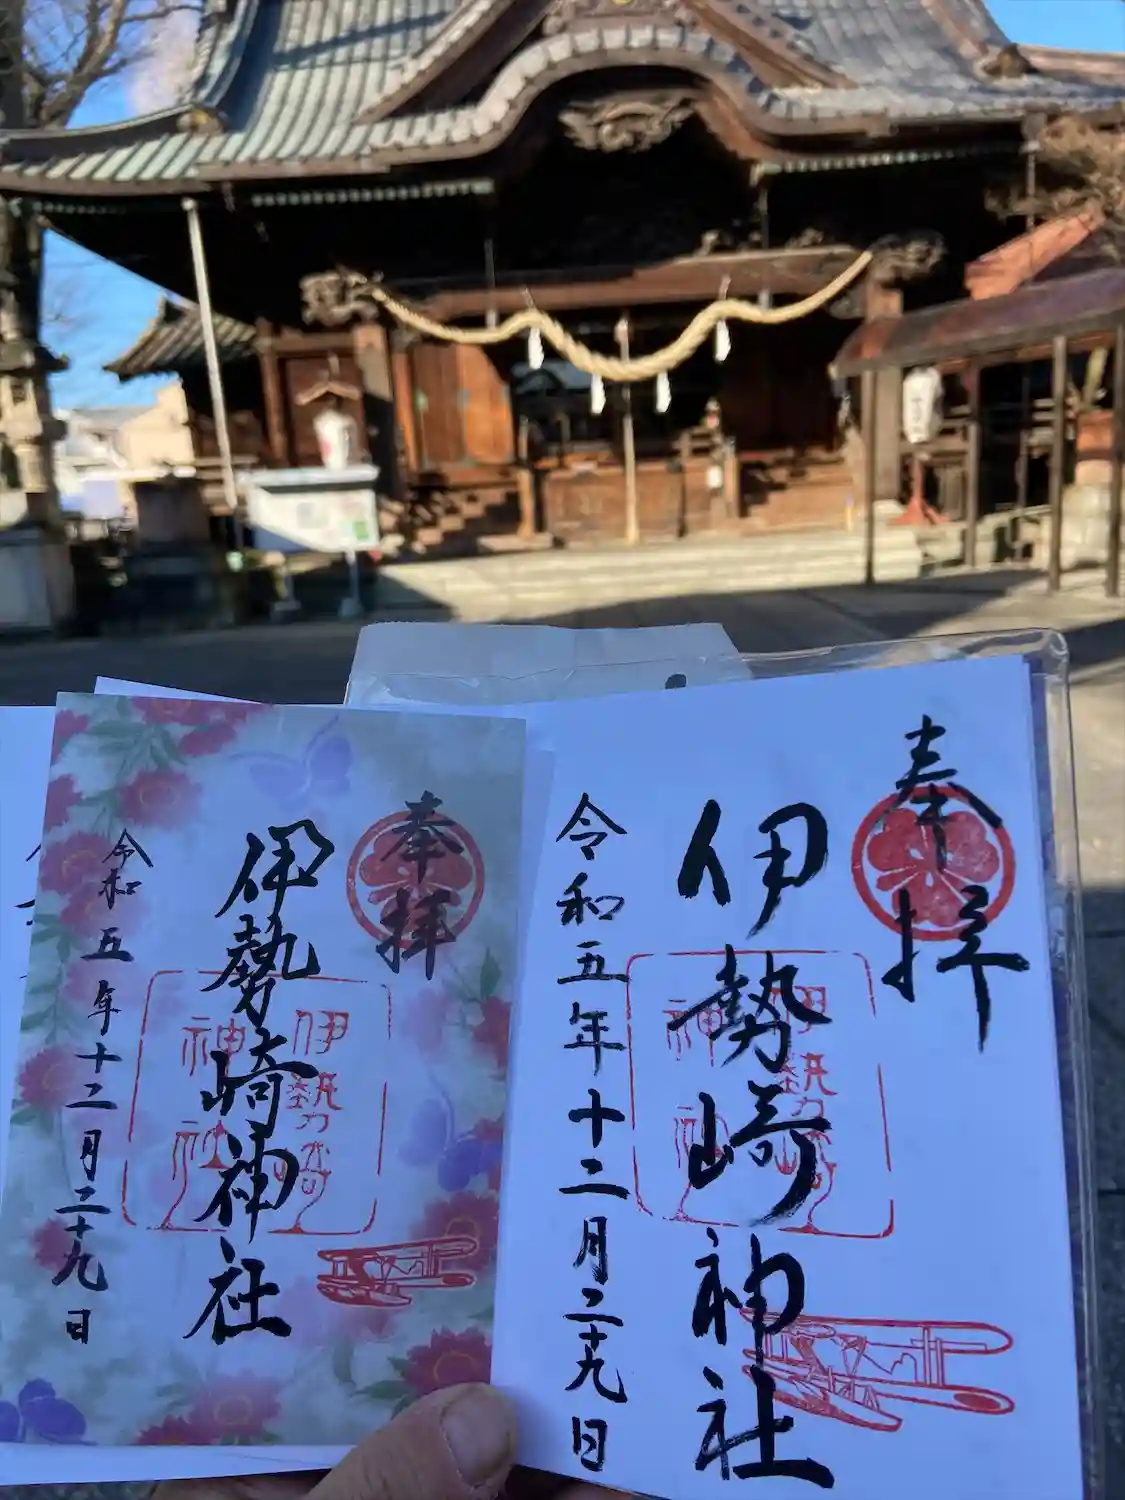 奉拝
伊勢崎神社
伊勢崎
神社
令和五年十二月二十九日
奉拝
伊勢崎神社
伊勢崎
神社
令和五年十二月二十九日